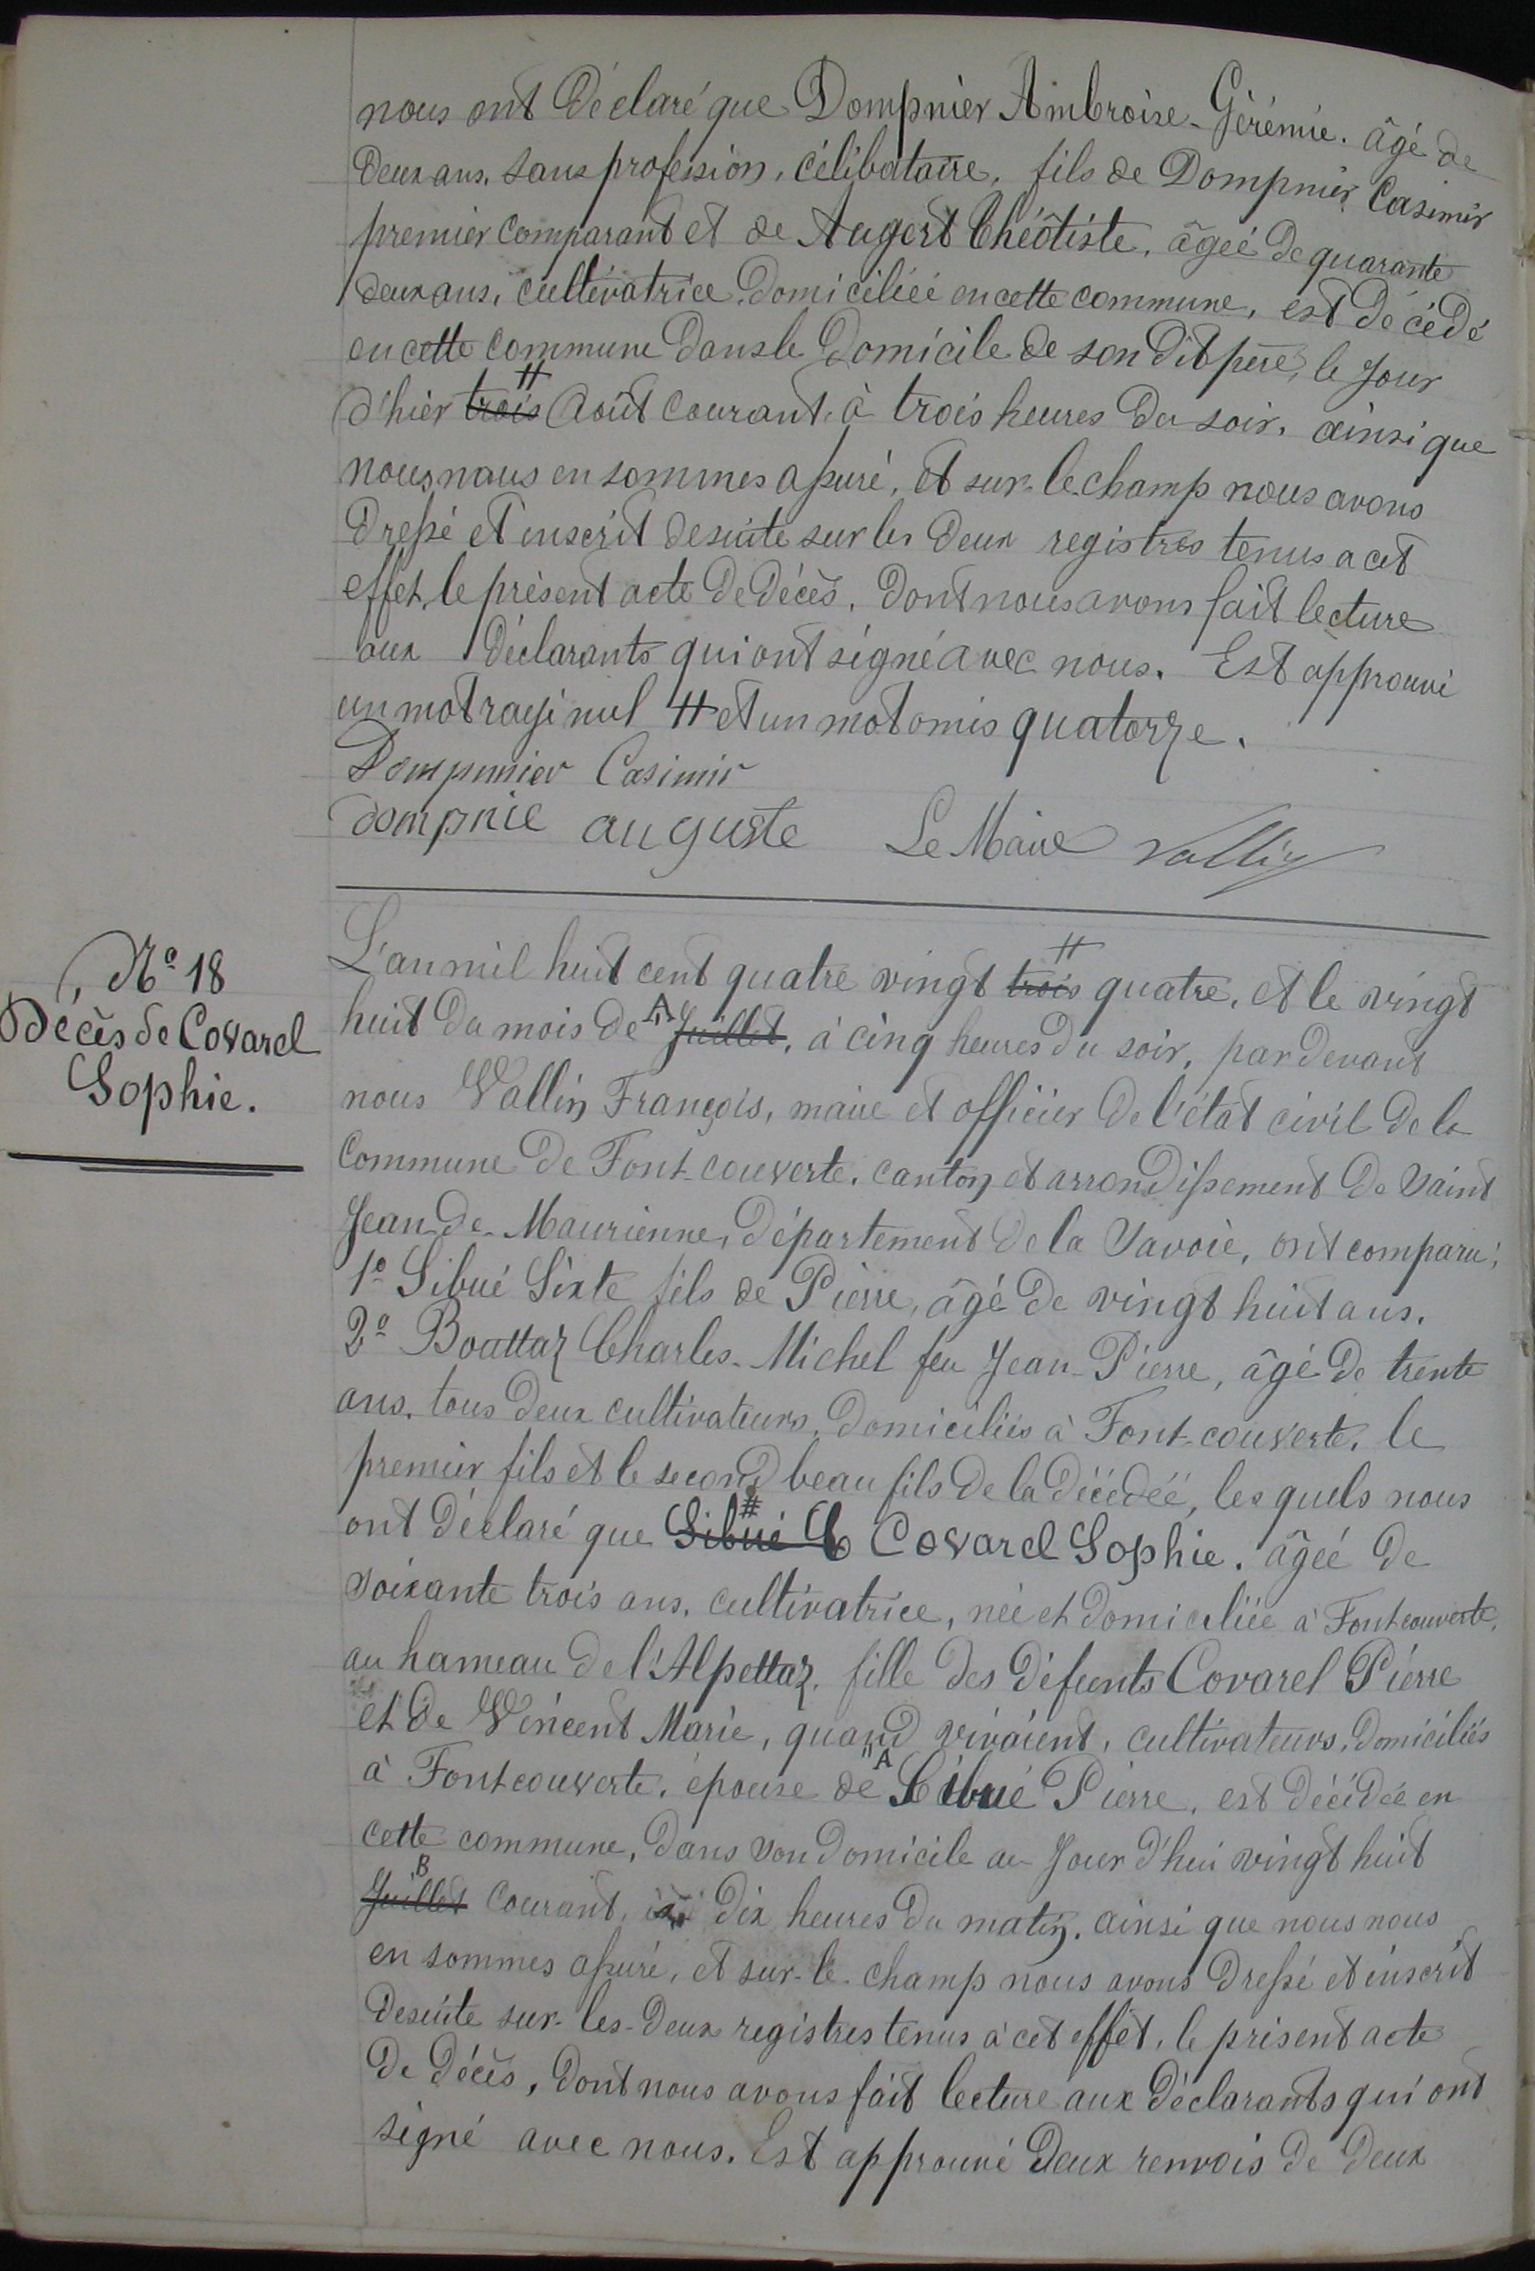 nous ont déclaré que Dompnier Ambroise-Gérémie. âgé de
deux ans, sans profession, célibataire, fils de Dompnier Casimir
premier comparant et de Augert Théôtiste, âgée de quarante
deux ans, cultivatrice domiciliée en cette commune, est décédé
en cette commune dans le domicile de son dit père, le jour
d'hier trois # Août courant à trois heures du soir, ainsi que
nous nous en sommes assuré, et sur-le-champ nous avons
dressé et inscrit desuite sur les deux registres tenus a cet
effet, le présent acte de décès, dont nous avons fait lecture
aux déclarants qui ont signé avec nous. Est approuvé
un mot rayé nul # et un mot omis quatorze.
Dompnier Casimir
dompnie auguste Le Maire Vallin
Nº 18
Décès de Covarel
Sophie.
L'an mil huit cent quatre vingt trois # quatre, et le vingt
huit du mois de "A" Juillet, à cinq heures du soir, par devant
nous Vallin François, maire et officier de l'état civil de la
commune de Font-couverte, canton et arrondissement de Saint
Jean-de-Maurienne, département de la Savoie, ont comparu:
1º Sibué Sixte fils de Pierre, âgé de vingt huit ans.
2º Bouttaz Charles-Michel feu Jean-Pierre, âgé de trente
ans, tous deux cultivateurs, domiciliés à Font-couverte, le
premier fils et le second beau fils de la décédée, les quels nous
ont déclaré que Sibué # C Covarel Sophie. âgée de
soixante trois ans, cultivatrice, née et domiciliée à Fontcouverte,
au hameau de l'Alpettaz, fille des défunts Covarel Pierre
et de Vincent Marie, quand vivaient, cultivateurs, domiciliés
à Fontcouverte, épouse de "A Sibué Pierre, est décédée en
cette commune, dans son domicile au jour d'hui vingt huit
Juillet B courant, à dix heures du matin, ainsi que nous nous
en sommes assuré, et sur-le-champ nous avons dressé et inscrit
desuite sur-les-deux registres tenus à cet effet, le présent acte
de décès, dont nous avons fait lecture aux déclarants qui ont
signé avec nous. Est approuvé deux renvois de deux